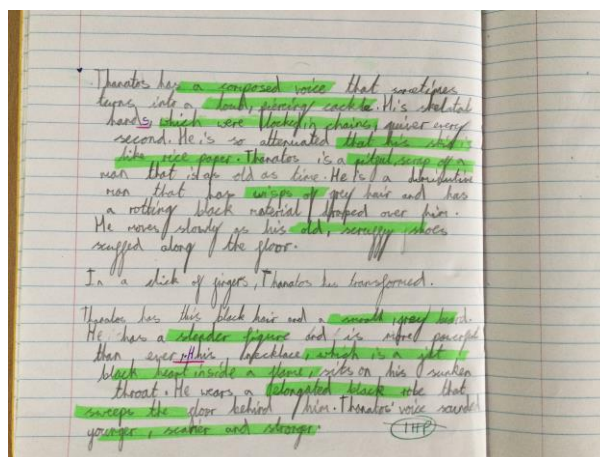 Thanatos has a composed voice that sometimes
turns into a loud, piercing cackle. His skeletal
hands, which were locked in chains, quiver every
second. He is so attenuated that his skin is
like rice paper. Thanatos is a pitiful scrap of a
man that is as old as time. He is a diminutive
man that has wisps of grey hair and has
a rotting black material draped over him.
He moves slowly as his old, scruffy shoes
scuffed along the floor.
In a click of fingers, Thanatos has transformed.
Thanatos has this black hair and a small, grey beard.
He has a slender figure and is more powerful
than ever. His necklace, which is a jet
black heart inside a flame, sits on his sunken
throat. He wears a elongated black robe that
sweeps the floor behind him. Thanatos' voice sounded
younger, scarier and stronger.
1HP